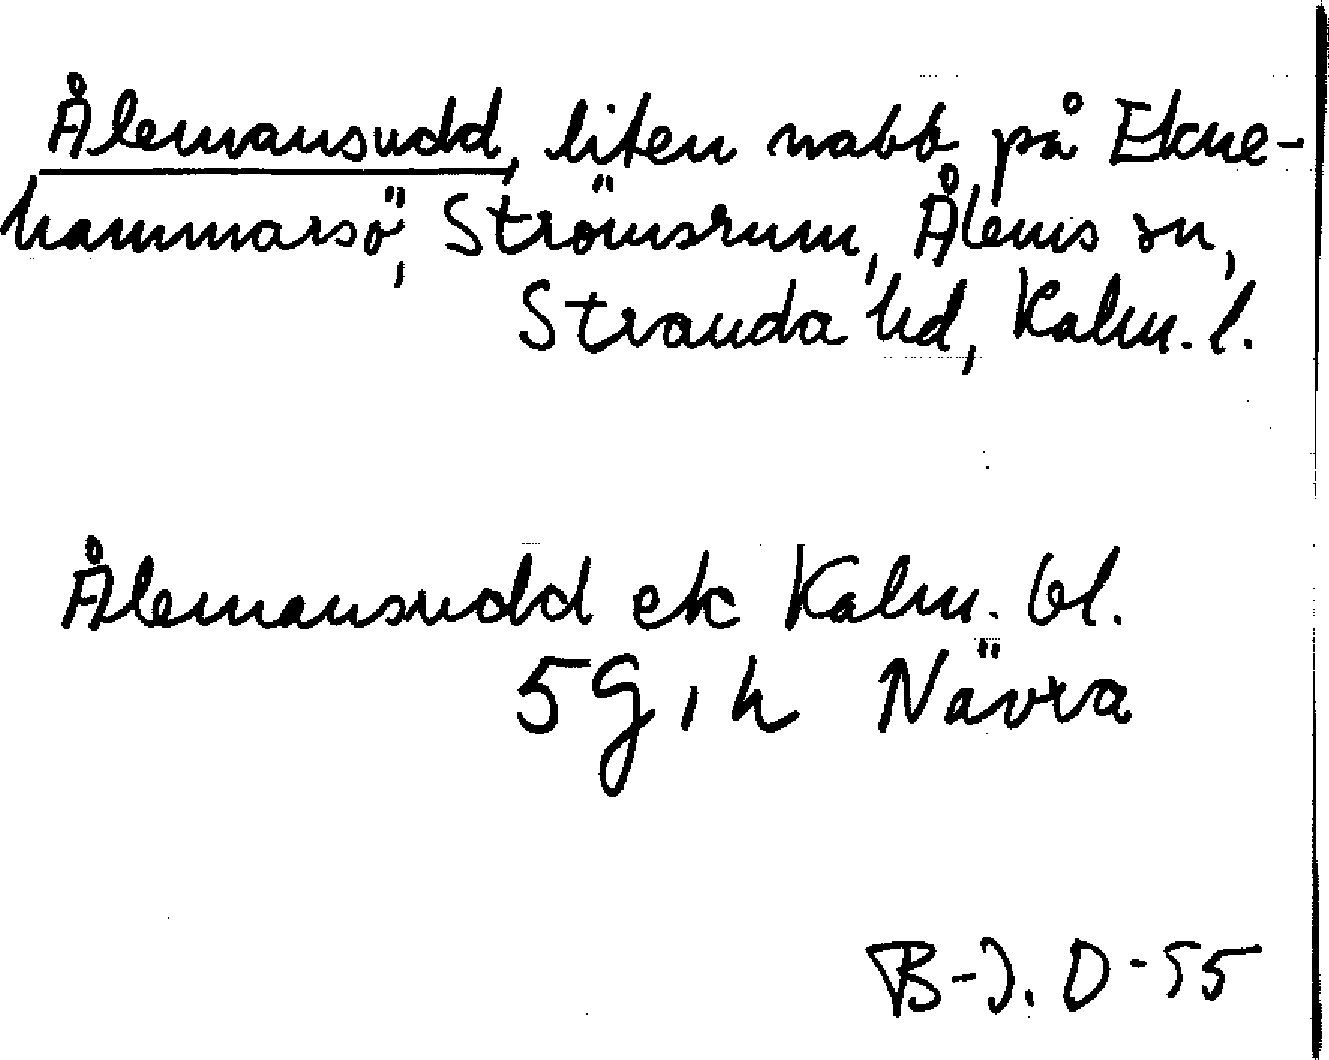 Ålemansudd, liten nabb på Ekne-
hammarsö, Strömsrum, Ålems sn,
Stranda hd, Kalm. l.
Ålemansudd ek Kalm. bl.
5 G, h Nävra
B-J. O-55